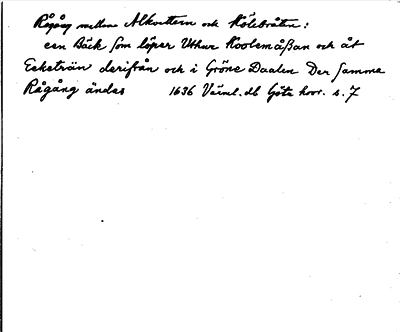 Rågång mellan Alkvettern och Kölebråten:
een Bäck som löper Uthur Koolemåßan och åt
Ecketräen derifrån och i Gröne Daalen Der samma
Rågång ändas 1636 Värml. db Göta hovr. s. 7